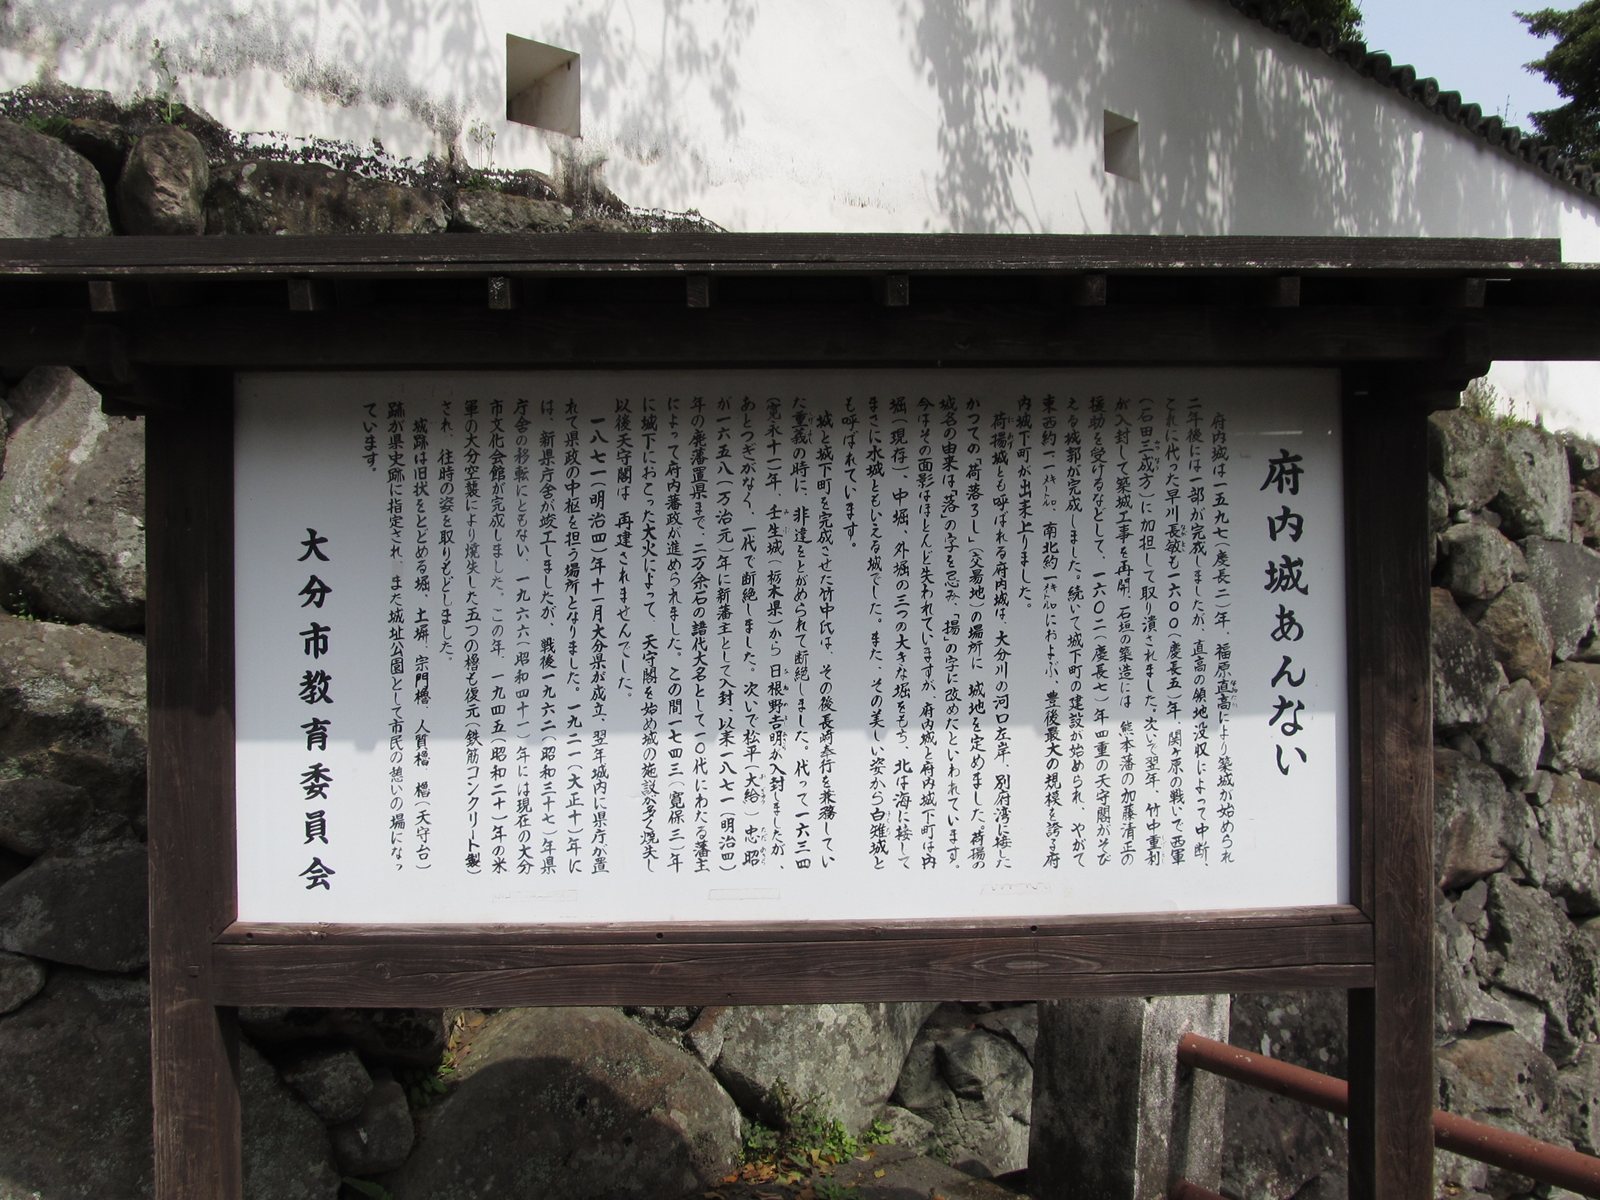 府内城あんない
府内城は一五九七(慶長二)年、福原直高により築城が始められ
二年後には一部が完成しましたが、直高の領地没収によって中断、
これに代った早川長敏も一六〇〇(慶長五)年、関ヶ原の戦いで西軍
(石田三成方)に加担して取り潰されました。次いで翌年、竹中重利
が入封して築城工事を再開、石垣の築造には熊本藩の加藤清正の
援助を受けるなどして、一六〇二(慶長七)年四重の天守閣がそび
える城郭が完成しました。続いて城下町の建設が始められ、やがて
東西約一、一キロメートル、南北約一キロメートルにおよぶ、豊後最大の規模を誇る府
内城下町が出来上りました。
荷揚城とも呼ばれる府内城は、大分川の河口左岸、別府湾に接した
かつての「荷落ろし」(交易地)の場所に城地を定めました。荷揚の
城名の由来は「落」の字を忌み、「揚」の字に改めたといわれています。
今はその面影はほとんど失われていますが、府内城と府内城下町は内
堀(現存)、中堀、外堀の三つの大きな堀をもち、北は海に接して
まさに水城ともいえる城でした。また、その美しい姿から白雉城と
も呼ばれています。
城と城下町を完成させた竹中氏は、その後長崎奉行を兼務してい
た重義の時に、非違をとがめられて断絶しました。代って一六三四
(寛永十一)年、壬生城(栃木県)から日根野吉明が入封しましたが、
あとつぎがなく、一代で断絶しました。次いで松平(大給)忠昭
が一六五八(万治元)年に新藩主として入封、以来一八七一(明治四)
年の廃藩置県まで、二万余石の譜代大名として一〇代にわたる藩主
によって府内藩政が進められました。この間一七四三(寛保三)年
に城下におこった大火によって、天守閣を始め城の施設が多く焼失し
以後天守閣は再建されませんでした。
一八七一(明治四)年十一月大分県が成立、翌年城内に県庁が置
れて県政の中枢を担う場所となりました。一九二一(大正十)年に
は、新県庁舎が竣工しましたが、戦後一九六二(昭和三十七)年県
庁舎の移転にともない、一九六六(昭和四十一)年には現在の大分
市文化会館が完成しました。この年、一九四五(昭和二十)年の米
軍の大分空襲により焼失した五つの櫓も復元(鉄筋コンクリート製)
され、往時の姿を取りもどしました。
城跡は旧状をとどめる堀、土塀、宗門櫓、人質櫓、櫓(天守台)
跡が県史跡に指定され、また城址公園として市民の憩いの場になっ
ています。
大分市教育委員会